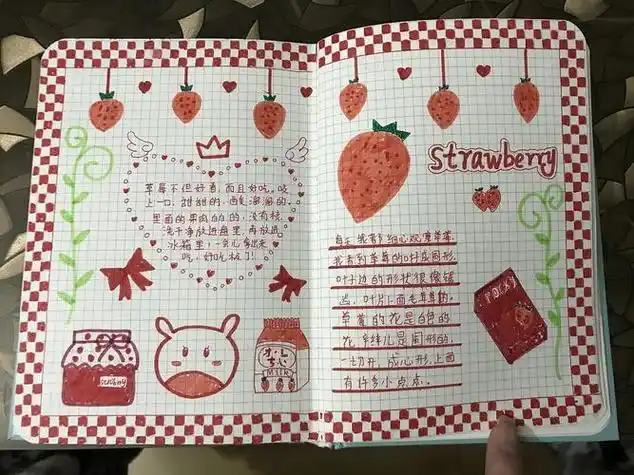 草莓不但好看,而且好吃。咬
上一口,甜甜的,酸溜溜的,
里面的果肉白白的,没有核,
洗干净放进盘里,再放进
冰箱里,一会儿拿出来
吃,好吃极了!
MILK
Strawberry
我看到草莓的叶片是圆形,
叶子边的形状很像锯
齿,叶片上面毛茸茸的,
草莓的花是白色的
花
是圆形的,
一切开,成心形,上面
有许多小点点。
POCKY